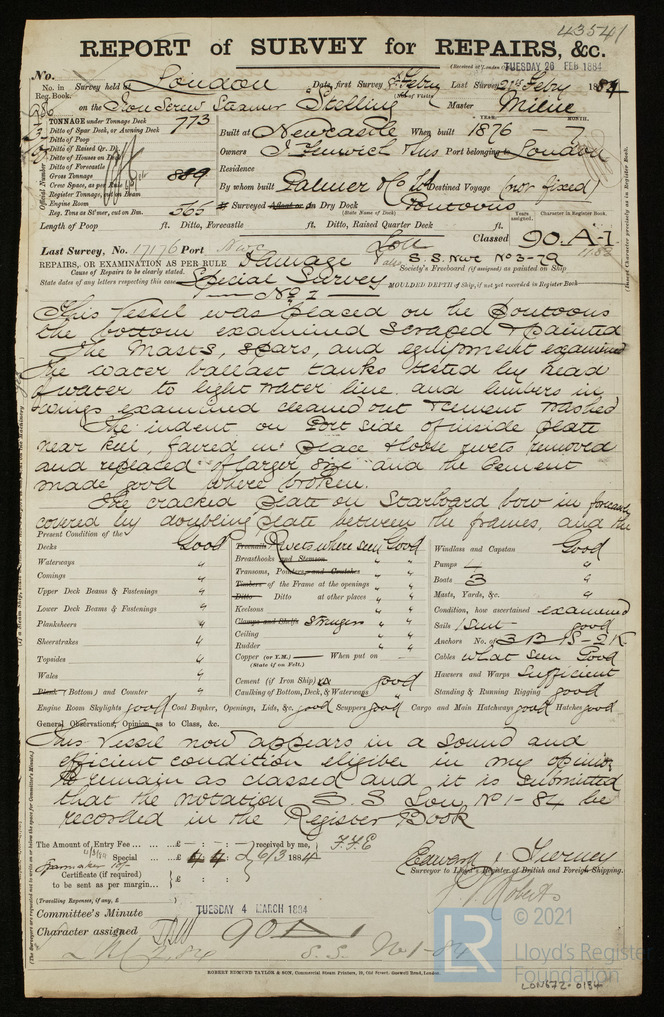 43541
REPORT of SURVEY for REPAIRS, &c.
TUESDAY 26 FEB 1884
No.
No. in Reg. Book. Survey held at London Date, first Survey Feby Last Survey 21st Feby 1884
on the Iron Screw Steamer Stelling Master Milne
TONNAGE under Tonnage Deck 773
Ditto of Spar Deck, or Awning Deck
Ditto of Poop
Ditto of Raised Qr. Deck
Ditto of Houses on Deck
Ditto of Forecastle
Gross Tonnage 889
Crew Space, as per Rule
Register Tonnage, cut on Beam
Engine Room
Reg. Tons as St'mer, cut on Bm. 565
Official Number
YEAR. MONTH.
Built at Newcastle When built 1876 - 7
Owners J Fenwick & Sons Port belonging to London
Residence
By whom built Palmer & Co Ld Destined Voyage (not fixed)
If Surveyed Afloat or in Dry Dock Pontoons
(State Name of Dock)
Years assigned. Character in Register Book.
Length of Poop ft. Ditto, Forecastle ft. Ditto, Raised Quarter Deck ft.
Classed 90.A-1.
Last Survey, No. 17176 Port Nwc Lon
REPAIRS, OR EXAMINATION AS PER RULE Damage also S.S. Nwc No 3-79
Cause of Repairs to be clearly stated. Society's Freeboard (if assigned) as painted on Ship
State dates of any letters respecting this case Special Survey MOULDED DEPTH of Ship, if not yet recorded in Register Book
No 1
This Vessel was placed on the Pontoons
the bottom examined scraped & painted
The Masts, spars, and equipment examined
the water ballast tanks tested by head
of water to light water line. and limbers in
wings examined cleaned out & cement washed
The indent on Port side of inside plate
near keel, faired in place & loose rivets removed
and replaced of larger size and the Cement
made good where broken.
The cracked plate on Starboard bow in forecastle
covered by doubling plate between the frames, and the
Present Condition of the
Decks Good
Waterways "
Comings "
Upper Deck Beams & Fastenings "
Lower Deck Beams & Fastenings "
Planksheers "
Sheerstrakes "
Topsides "
Wales "
Plank (Bottom) and Counter "
Treenails Rivets where seen Good
Breasthooks and Stemson " "
Transoms, Pointers, and Crutches " "
Timbers of the Frame at the openings " "
Ditto Ditto at other places " "
Keelsons " "
Clamps and Shelfs Stringers " "
Ceiling " "
Rudder " "
Copper (or Y.M.) When put on
(State if on Felt.)
Cement (if Iron Ship) good
Caulking of Bottom, Deck, & Waterways "
Windlass and Capstan Good
Pumps 4 "
Boats 3 "
Masts, Yards, &c. "
Condition, how ascertained examined
Sails 1 suit good
Anchors No. of 3 B 1 S - 2 K
Cables what seen Good
Hawsers and Warps Sufficient
Standing & Running Rigging good
Engine Room Skylights good Coal Bunker, Openings, Lids, &c. good Scuppers good Cargo and Main Hatchways good Hatches good
General Observations, Opinion, as to Class, &c.
This Vessel now appears in a sound and
efficient condition eligible in my opinion
to remain as classed and it is submitted
that the notation S. S. Lon No 1-84 be
recorded in the Register Book
The Amount of Entry Fee ... £ : : received by me, F.H.E
Special ... £ 4 : 4 : 6/3 1884
Certificate (if required)
to be sent as per margin...
£ :
(Travelling Expenses, if any, £
Edward Tierney
Surveyor to Lloyd's Register of British and Foreign Shipping.
Committee's Minute TUESDAY 4 MARCH 1884
Character assigned 90 A 1
S.S. No 1-84
ROBERT EDMUND TAYLOR & SON, Commercial Steam Printers, 19, Old Street, Goswell Road, London.
LR © 2021
Lloyd's Register
Foundation
LON672-0184